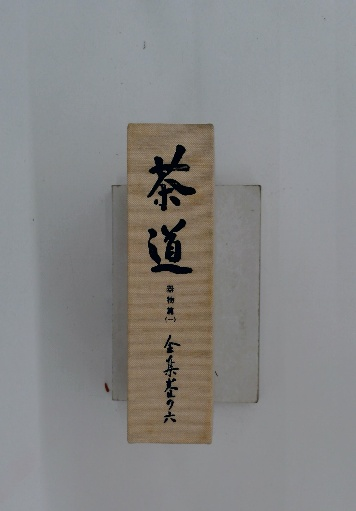 茶道
器物篇
(一)
全集巻の六